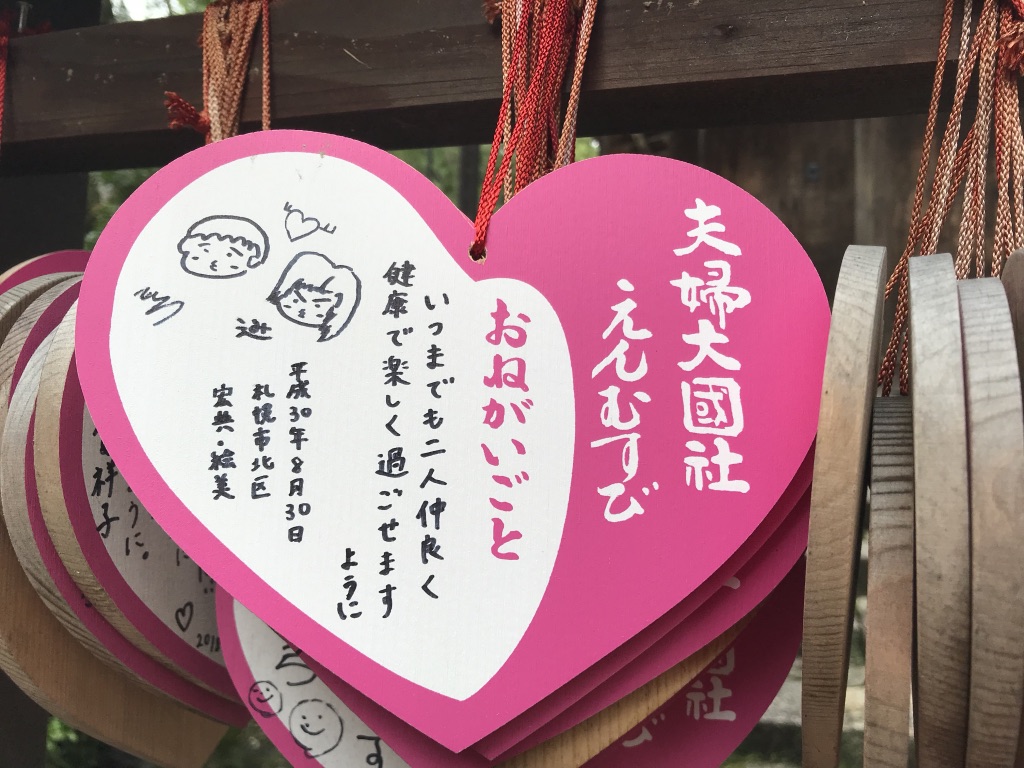 夫婦大國社
えんむすび
おねがいごと
いつまでも二人仲良く
健康で楽しく過ごせます
ように
平成30年8月30日
札幌市北区
宏典・絵美
祥子
うに。
2018
社
び
す